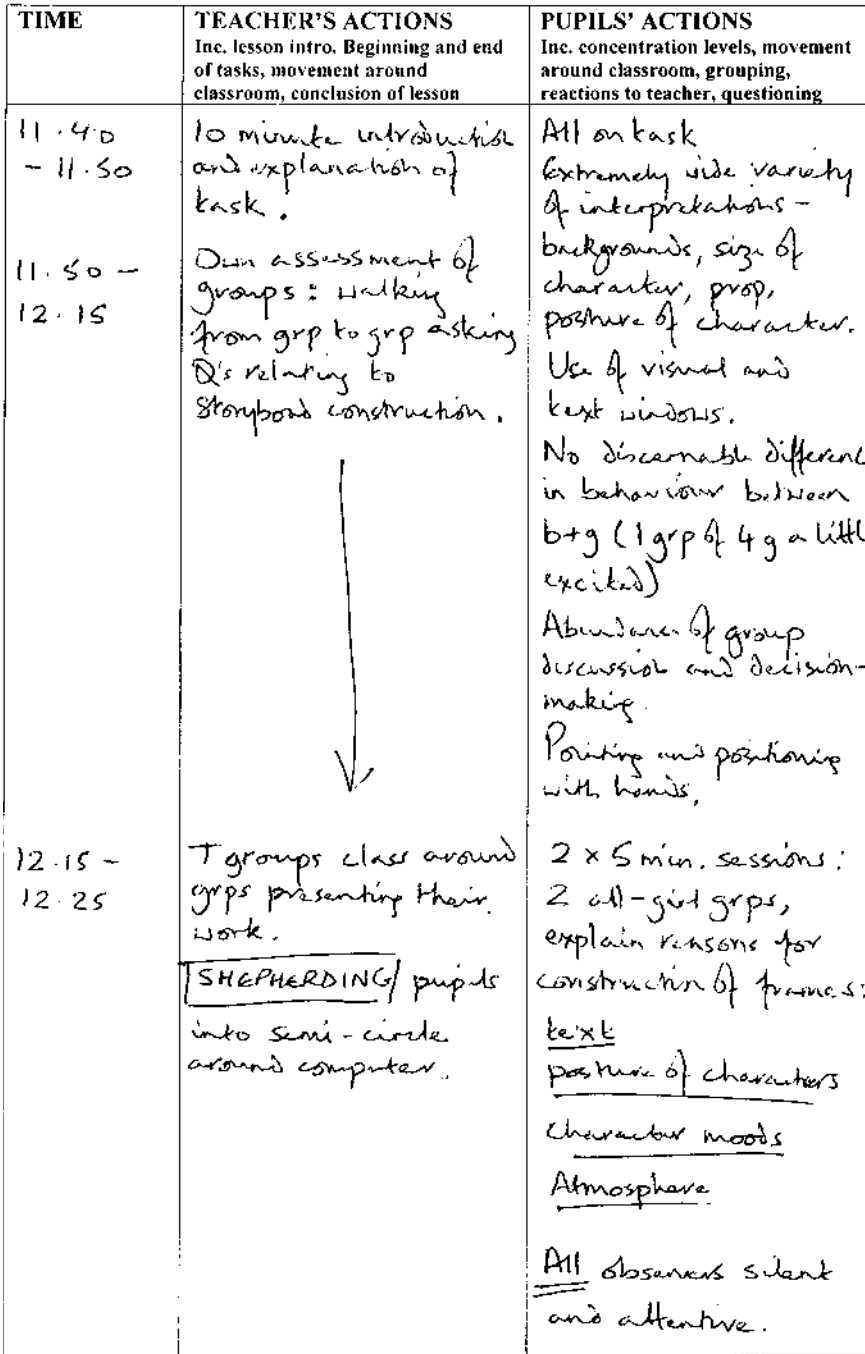 TIME
TEACHER'S ACTIONS
Inc. lesson intro. Beginning and end
of tasks, movement around
classroom, conclusion of lesson
PUPILS' ACTIONS
Inc. concentration levels, movement
around classroom, grouping,
reactions to teacher, questioning
11.40
- 11.50
10 minute introduction
and explanation of
task.
All on task
Extremely wide variety
of interpretations -
backgrounds, size of
character, prop,
posture of character.
Use of visual and
text windows.
No discernable differenc
in behaviour between
b+g (1 grp of 4 g a littl
excited)
Abundance of group
discussion and decision-
making.
Pointing and positioning
with hands,
11.50 -
12.15
Own assessment of
groups: walking
from grp to grp asking
Q's relating to
Storyboard construction.
12.15 -
12.25
T groups class around
grps presenting their
work.
SHEPHERDING pupils
into semi-circle
around computer.
2 x 5 min. sessions:
2 all-girl grps,
explain reasons for
construction of frames:
text
posture of characters
Character moods
Atmosphere
All observers silent
and attentive.